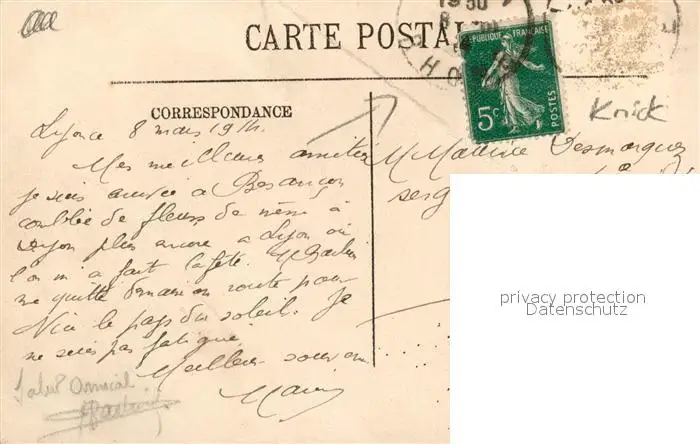 CARTE POSTALE
1930
RÉPUBLIQUE FRANÇAISE
5c
POSTES
Knick
CORRESPONDANCE
Lyon ce 8 mars 1914.
Mes meilleures amitiés
je suis arrivée à Besançon
comblée de fleurs de même à
plus encore a Lyon où
l'on m'a fait la fête. M
me quitte demain en route pour
Nice le pays du soleil. Je
ne suis pas fatiguée
Meilleur souvenir
M Maurice Desmarquez
serg
privacy protection
Datenschutz